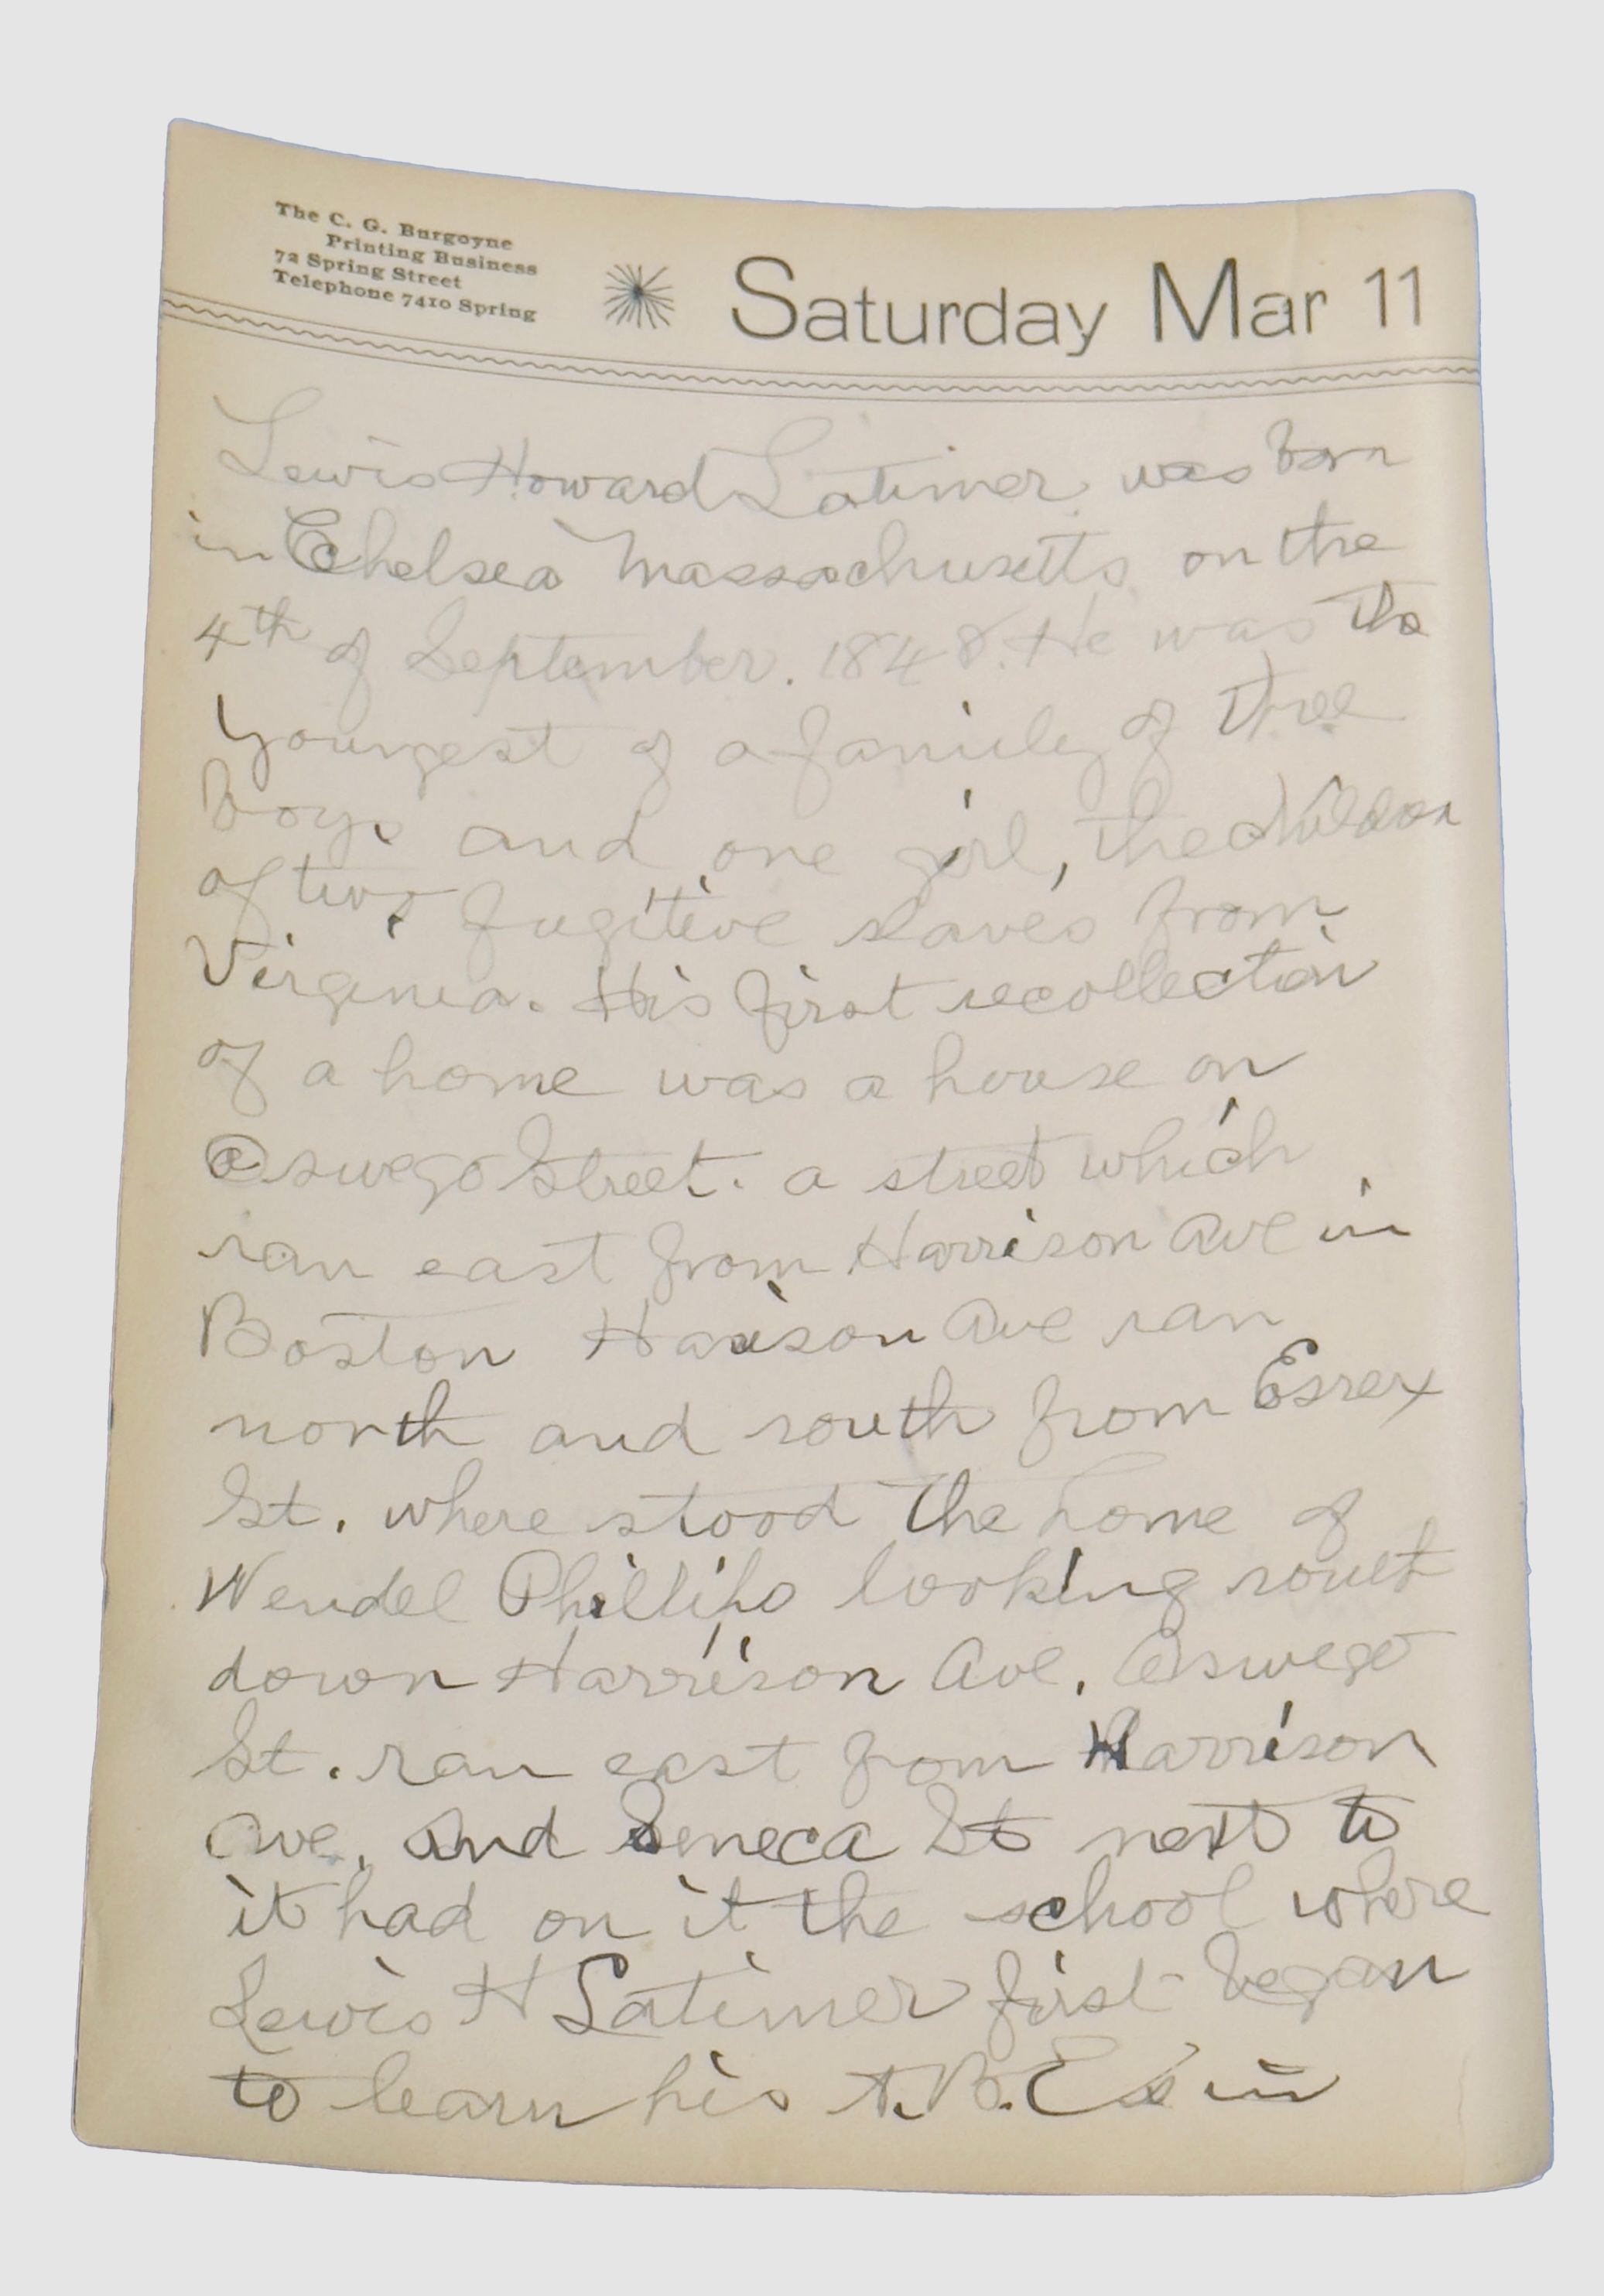 The C. G. Burgoyne
Printing Business
72 Spring Street
Telephone 7410 Spring
Saturday Mar 11
Lewis Howard Latimer was born
in Chelsea Massachusetts on the
4th of September. 1848. He was the
youngest of a family of three
boys and one girl, the children
of two fugitive slaves from
Virginia. His first recollection
of a home was a house on
Oswego Street. a street which
ran east from Harrison Ave in
Boston Harrison Ave ran
north and south from Essex
St. where stood the home of
Wendel Phillips looking south
down Harrison Ave. Oswego
St. ran east from Harrison
Ave. and Seneca St next to
it had on it the school where
Lewis H Latimer first began
to learn his A.B.C's in